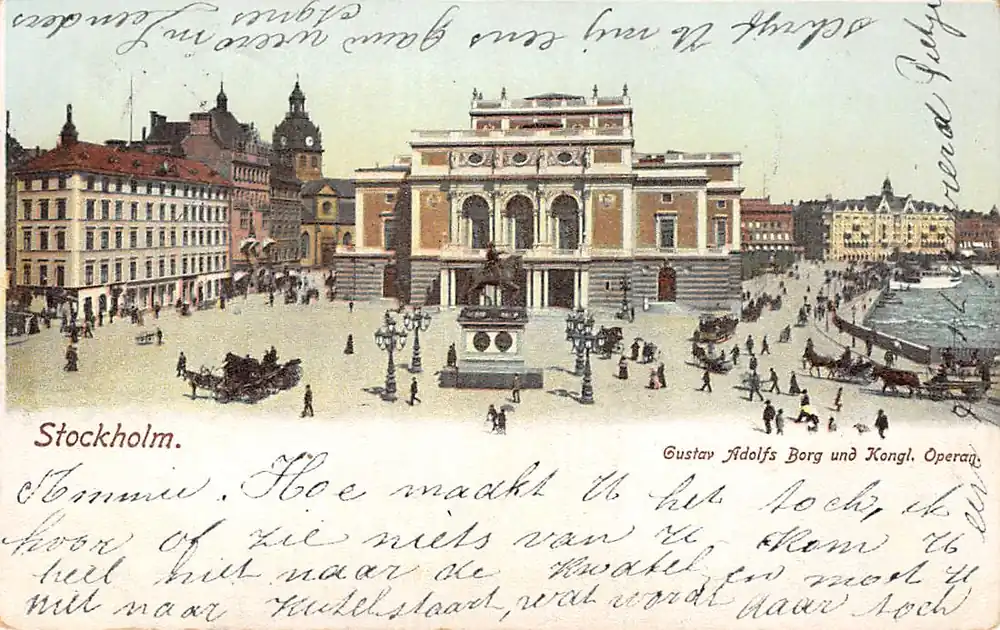 Stockholm.
Gustav Adolfs Borg und Kongl. Operan.
Ammie. Hoe maakt U het toch, ik
hoor of zie niets van U. Kom U
heel niet naar de Kwatel, en moet U
niet naar Kutelstaart, wat wordt daar toch
eerd Pietje
schryft U mij eens gauw weer m Leenders
Agnes